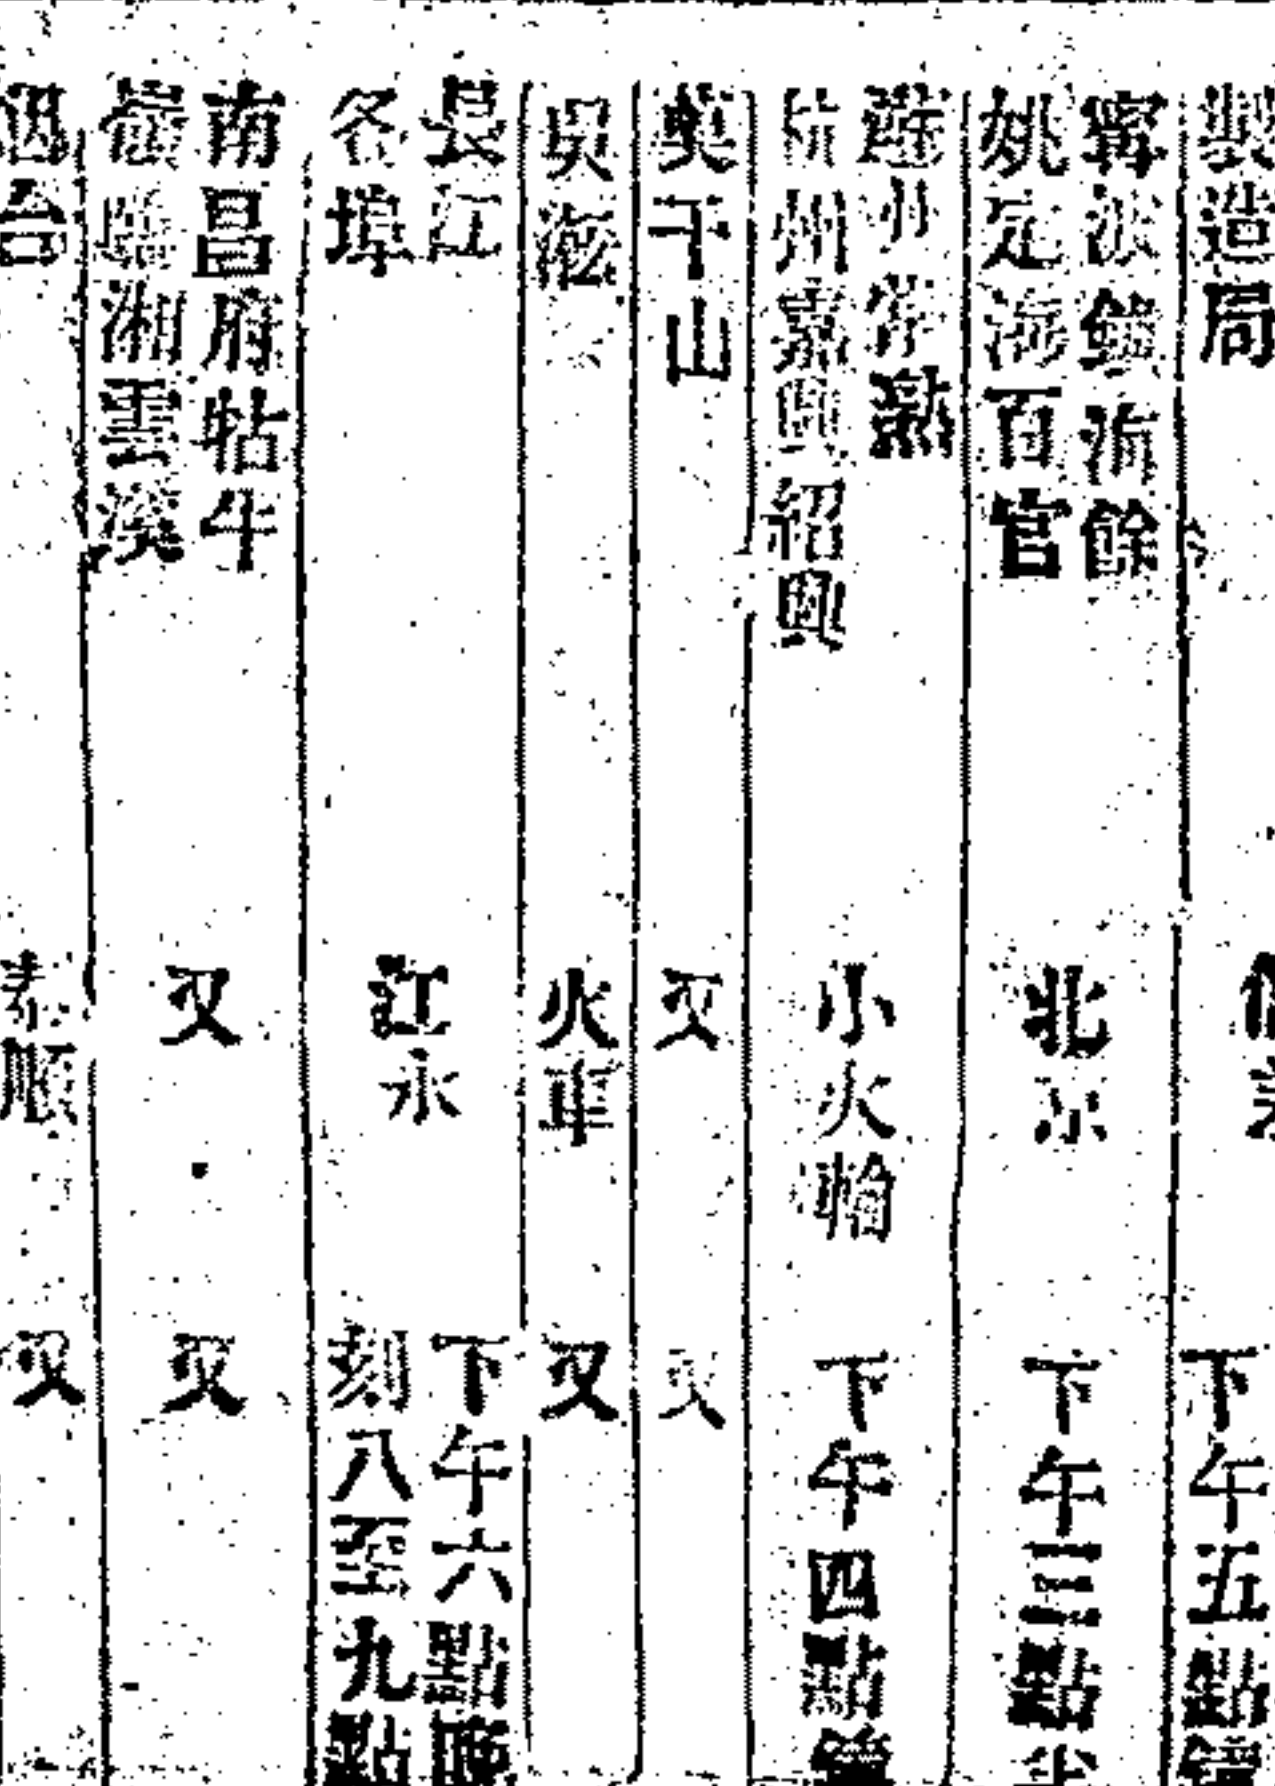 製造局
下午五點鐘
寧波鎮海餘
姚定海百官
北京
下午三點半
蘇州常熟
杭州嘉興紹興
小火輪
下午四點鐘
莫干山
又
又
吳淞
火車
又
長江
各埠
江永
下午六點
刻八至九點
南昌府牯牛
嶺臨湘雲溪
又
又
烟台
泰順
又